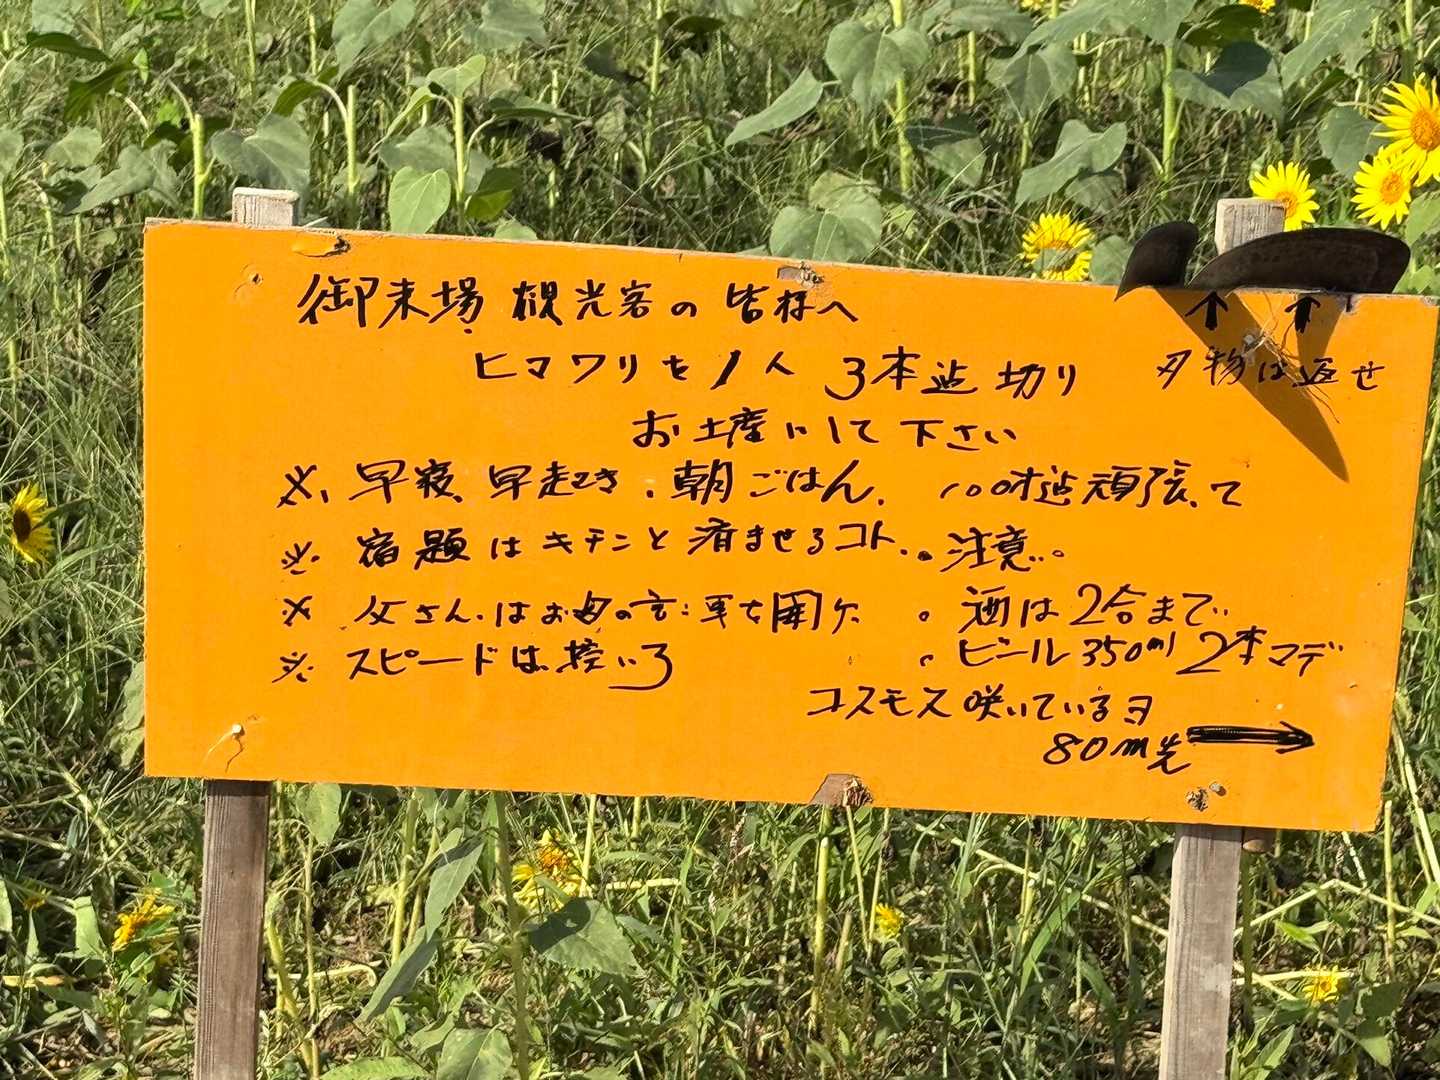 御来場 観光客の皆様へ
ヒマワリを1人 3本迄切り
刃物は返せ
お土産にして下さい
※ 早寝、早起き、朝ごはん。 100才迄頑張って
※ 宿題はキチンと済ませるコト。 。注意。
※ 父さんはお母の言う事を聞け 。酒は2合まで
※ スピードは控いろ 。ビール350ml 2本マデ
コスモス咲いているヨ
80m先 →